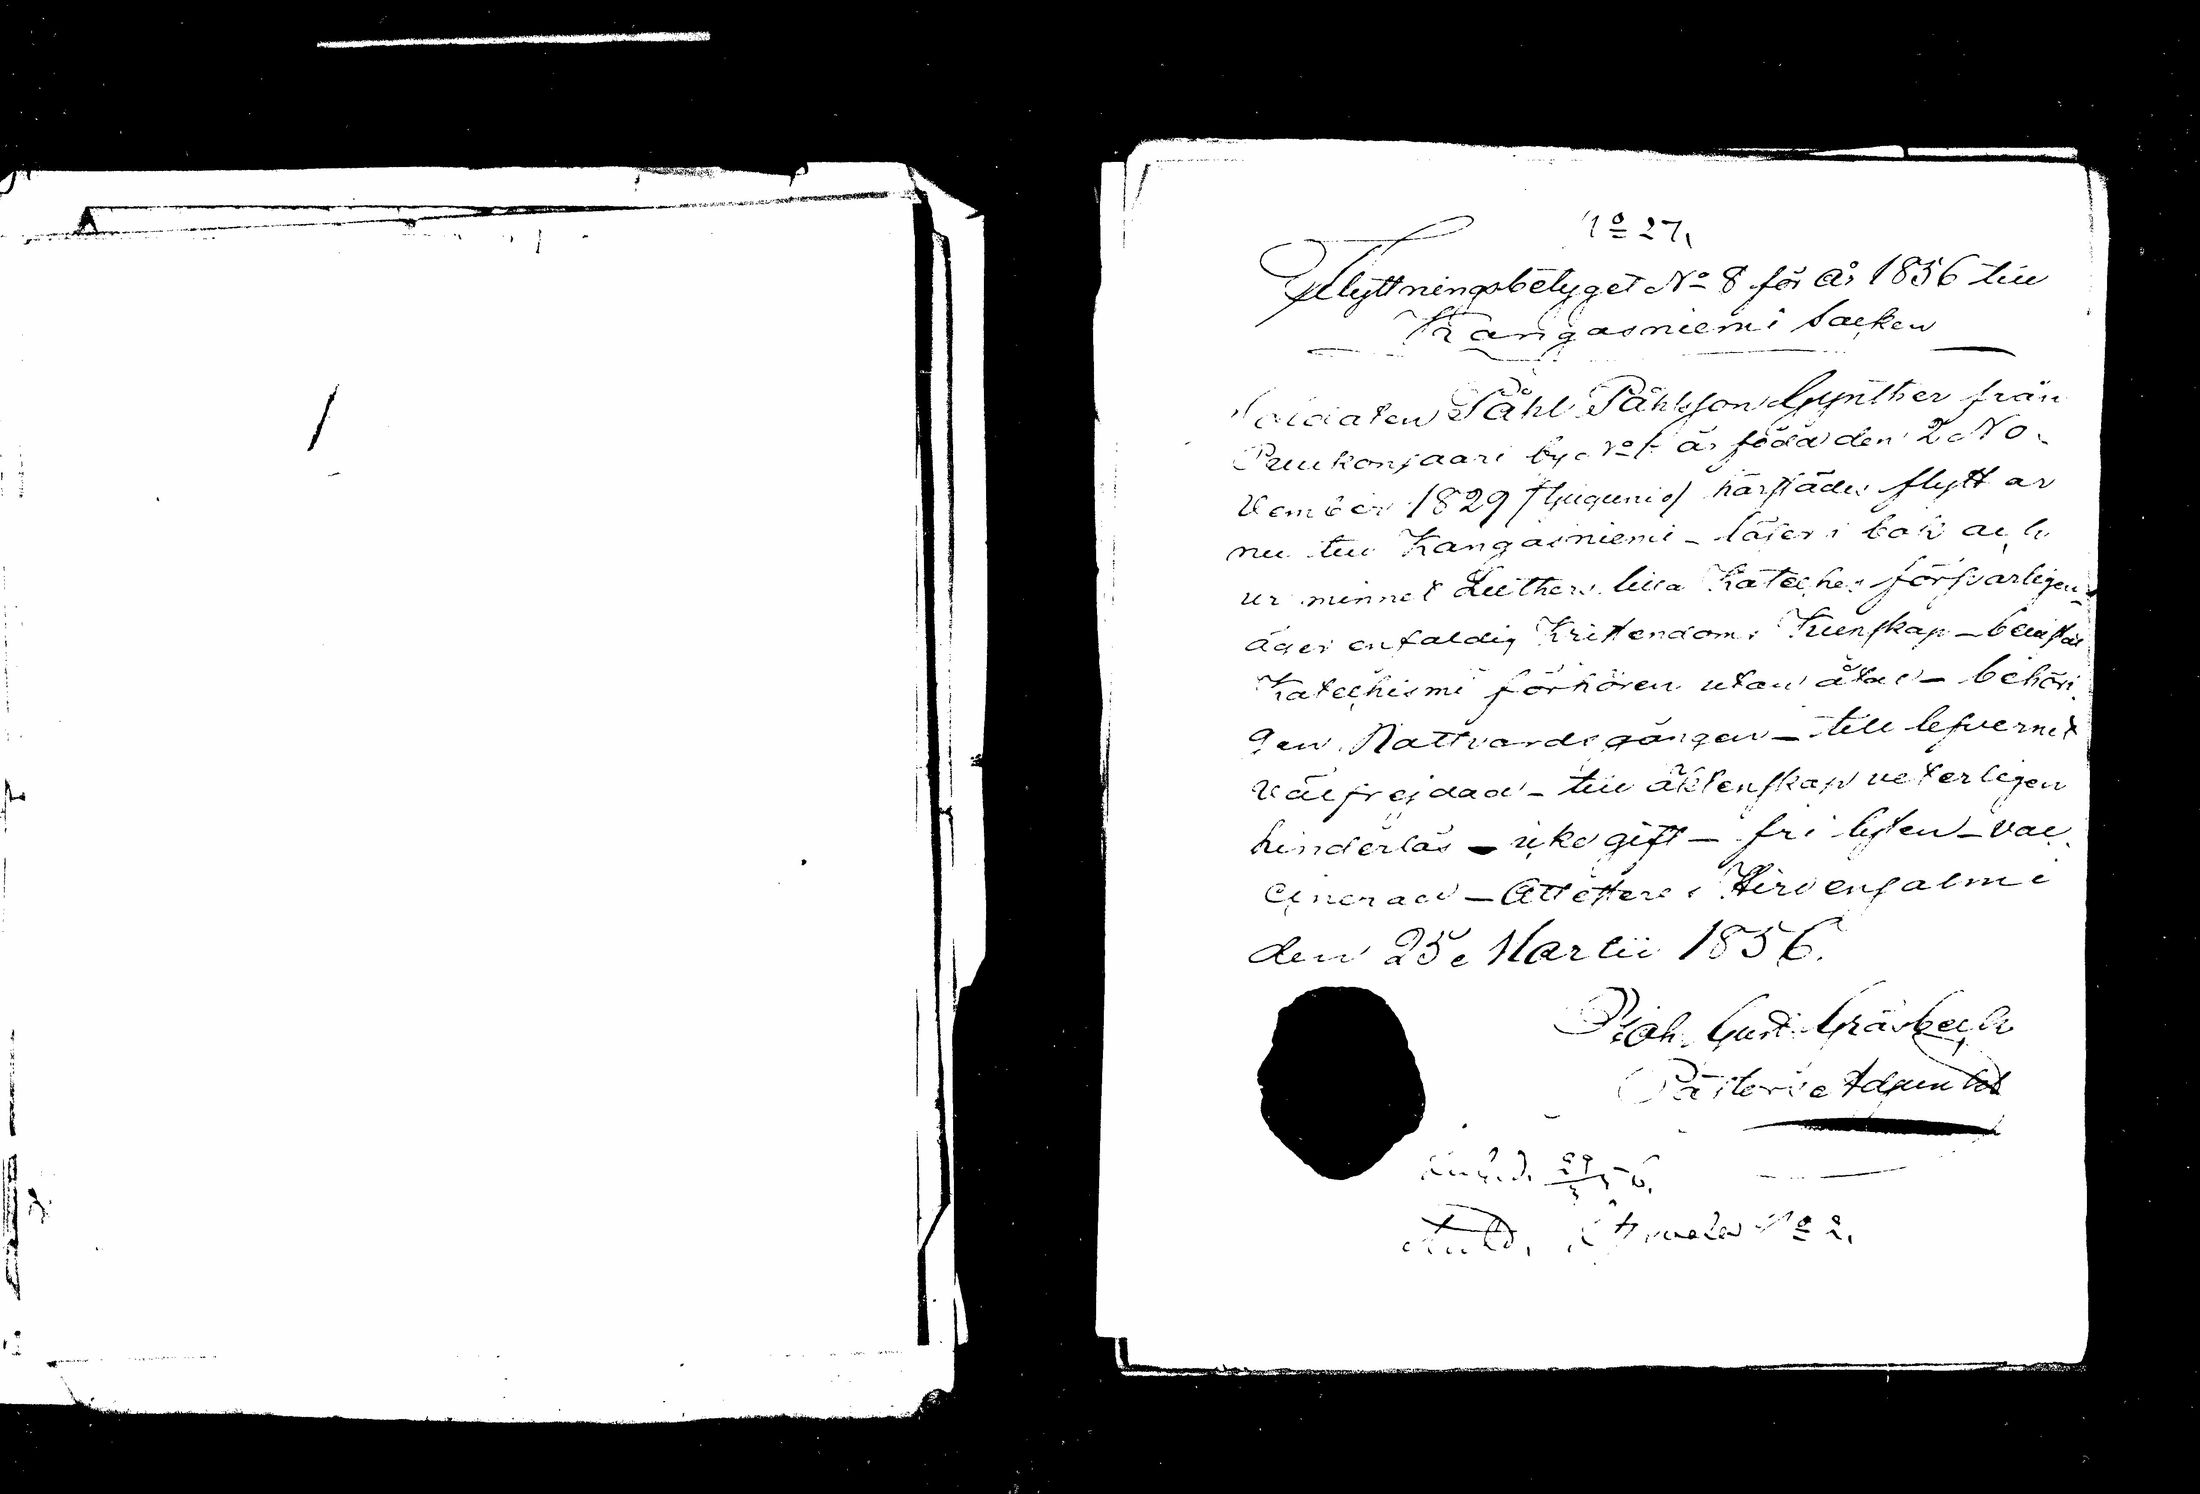 No 27.
Flyttningsbetyget No 8 för år 1856 till
Kangasniemi Socken
Soldaten Påhl Påhlsson Gynther från
Puukonsaari by No 1 är född den 2 No-
vember 1829 /tjugunio/ härstädes flyttar
nu till Kangasniemi – läser i bok och
ur minnet Luthers lilla Kateches försvarligen –
äger enfaldig Kristendoms Kunskap – bevistat
Katechismi förhören utan åtal – behöri-
gen Nattvardsgången – till lefvernet
välfrejdad – till äktenskap veterligen
hinderlös – icke gift – fri lyten – vac-
cinerad – Attesterar Hirvensalmi
den 25e Martii 1856.
Joh. Gust. Gråsbeck
Pastors Adjunkt
29/3 56.
No 2.